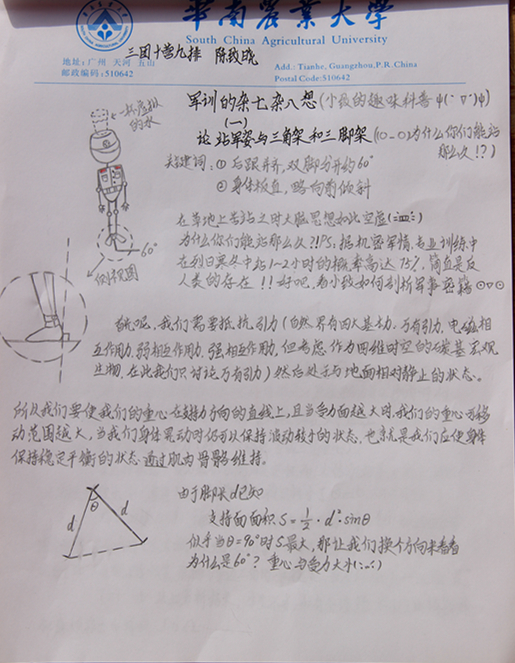 華南農業大學
South China Agricultural University
三团十营九排 陈致晓
地址:广州 天河 五山
邮政编码:510642
Add.: Tianhe, Guangzhou,P.R.China
Postal Code:510642
军训的杂七杂八想(小致的趣味科普
(一)
论站军姿与三角架和三脚架(⊙_⊙)为什么你们能站
那么久!?)
一杯虚拟
的水
关键词:①后跟并齐,双脚分开约60°
②身体板直,略向前倾斜
在草地上苦站之时大脑思想如此空虚
为什么你们能站那么久?!PS:据机密军情,专业训练中
在烈日寒冬中站1-2小时的概率高达75%,简直是反
人类的存在!!好吧,看小致如何剖析军事密籍⊙▽⊙
60°
侧视图
首先呢,我们需要抵抗引力(自然界有四大基本力,万有引力,电磁相
互作用力,弱相互作用力,强相互作用力,但考虑作为四维时空的碳基宏观
生物,在此我们只讨论万有引力)然后处于与地面相对静止的状态。
所以我们要使我们的重心在支持力方向的直线上,且当受力面越大时,我们的重心可移
动范围越大,当我们身体晃动时仍可以保持波动较小的状态,也就是我们应使身体
保持稳定平衡的状态通过肌肉骨骼维持。
d θ d
由于脚长d已知
支持面面积S=1/2·d²·sinθ
似乎当θ=90°时S最大,那让我们换个方向来看看
为什么是60°?重心与受力大小